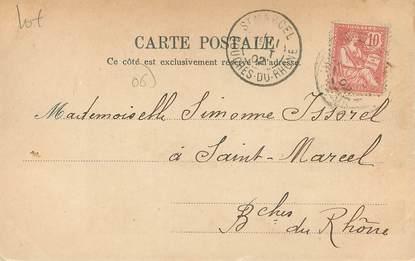 Lot
CARTE POSTALE
Ce côté est exclusivement réservé à l'adresse.
ST MARCEL
02
BOUCHES-DU-RHÔNE
10
06)
Mademoiselle Simonne Isserel
à Saint-Marcel
Bches du Rhône